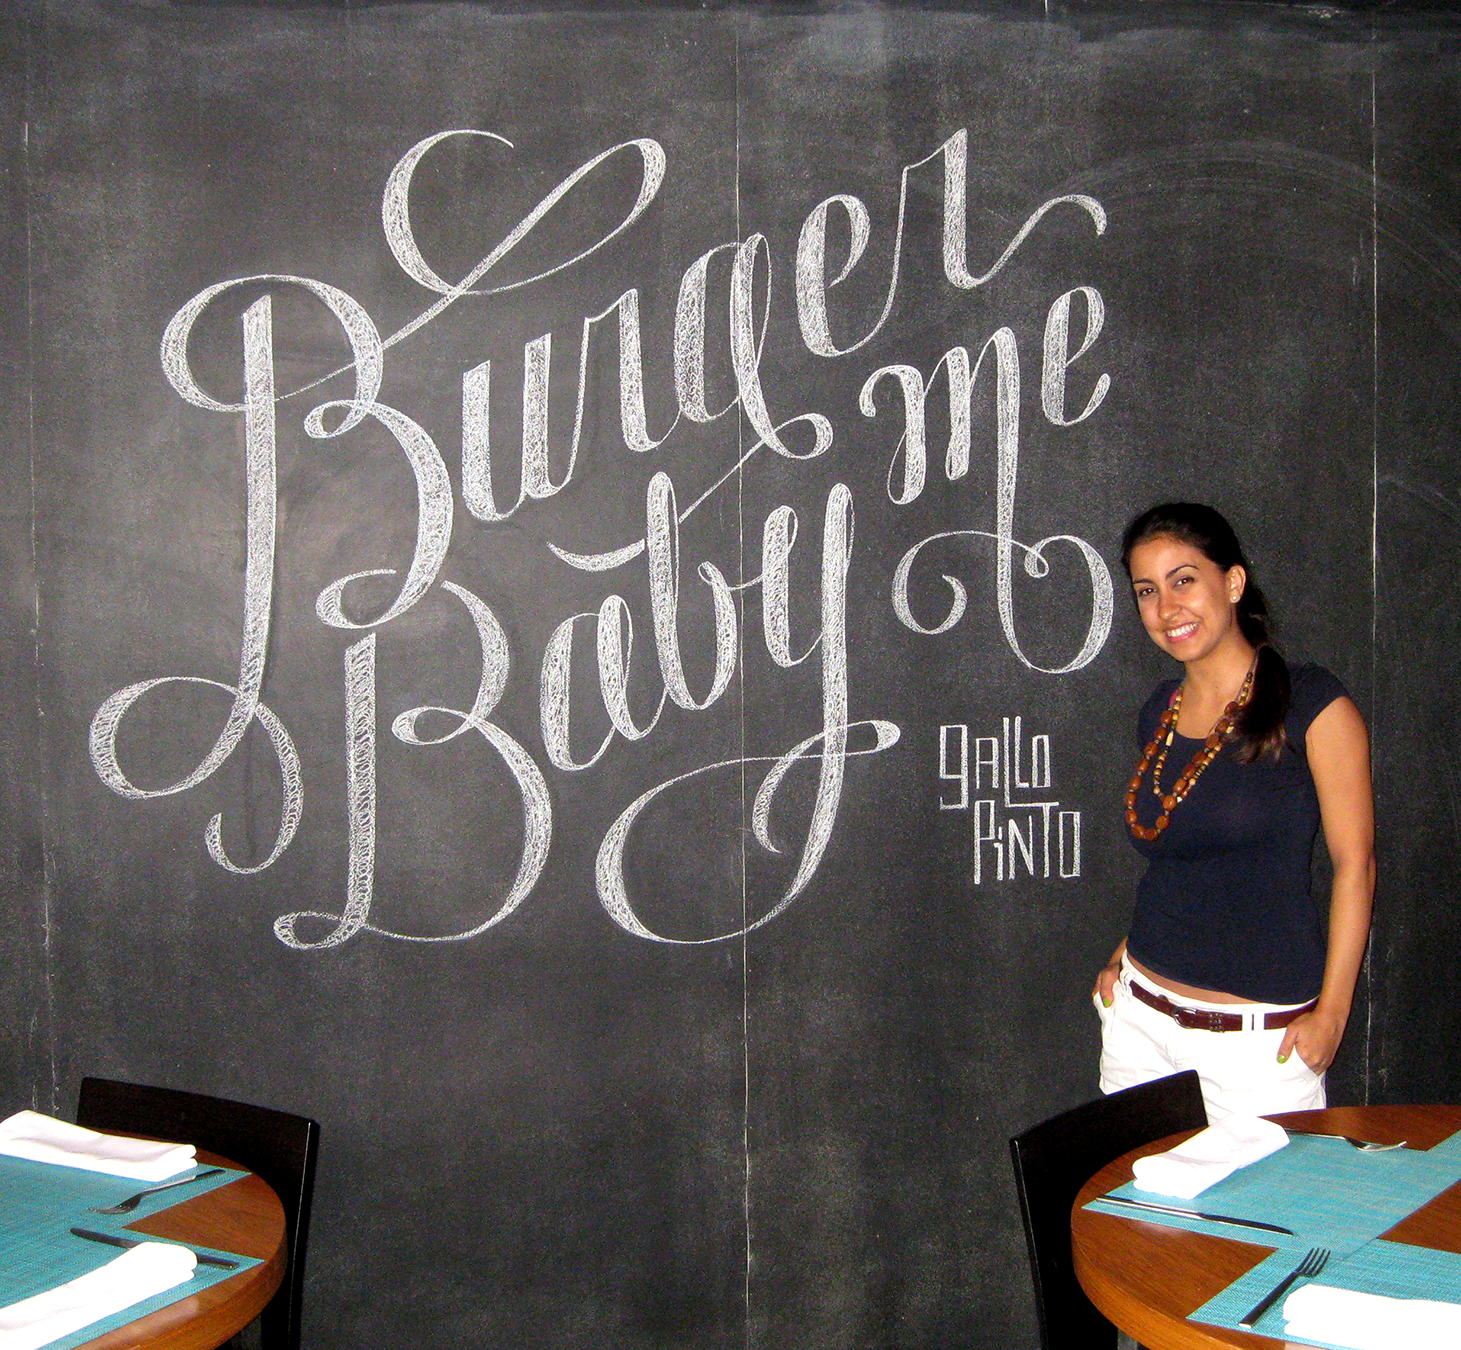 Burger
me
Baby
gALLO
PiNTO